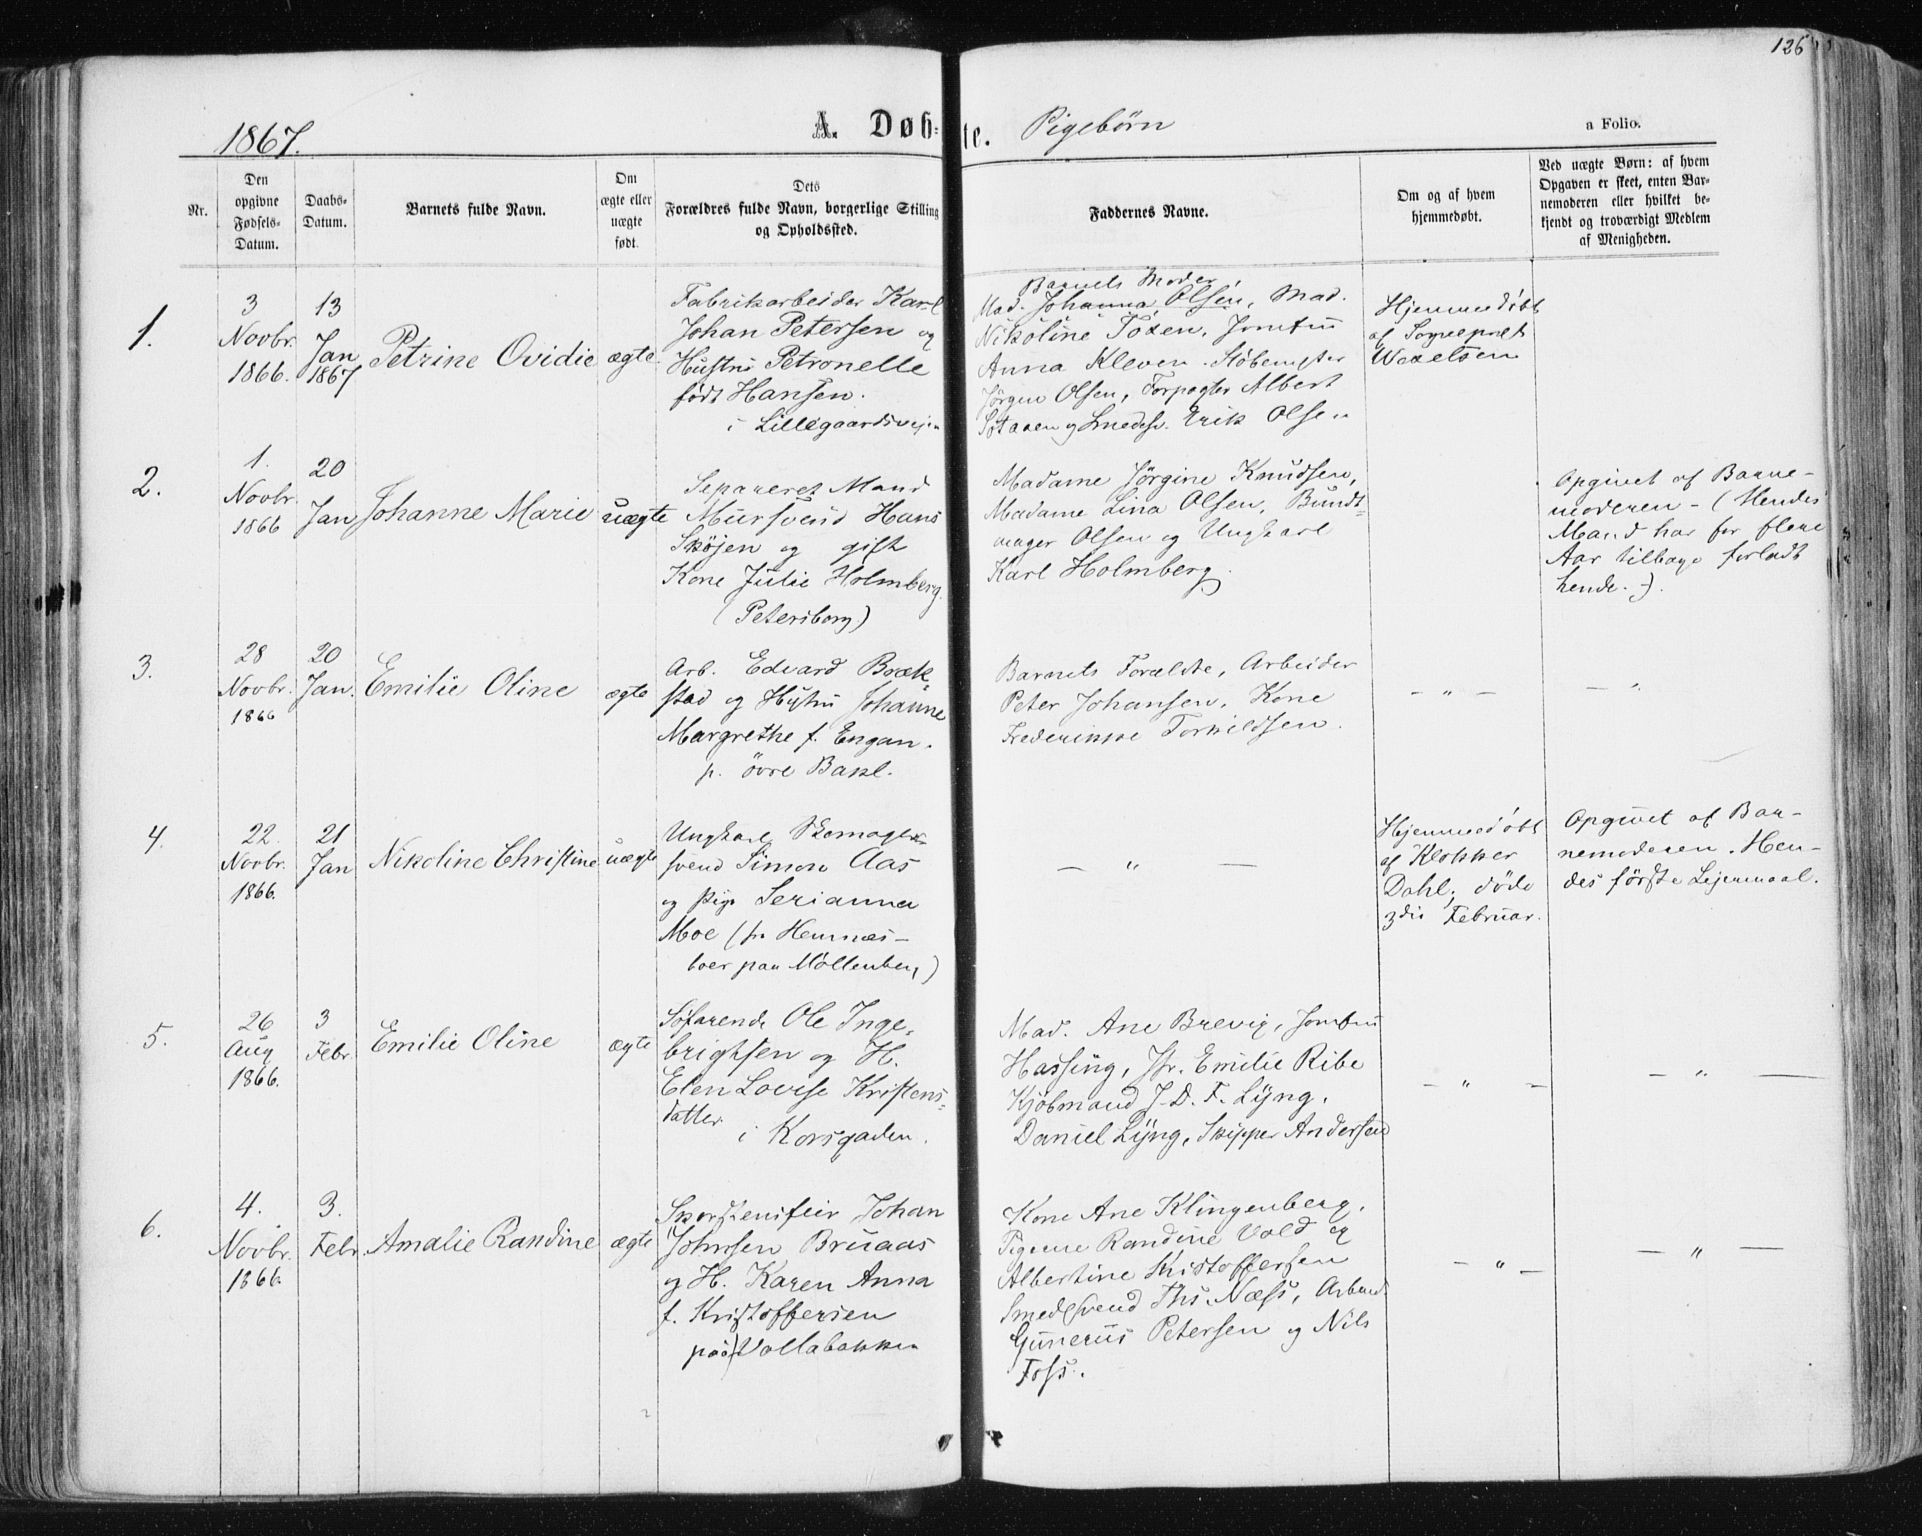 126
1867.
A. Døb-
te.
Pigebørn
a Folio.
Nr.
Den
opgivne
Fødsels-
Datum.
Daabs-
Datum.
Barnets fulde Navn.
Om
ægte eller
uægte
født.
Dets
Forældres fulde Navn, borgerlige Stilling
og Opholdssted.
Faddernes Navne.
Om og af hvem
hjemmedøbt.
Ved uægte Børn: af hvem
Opgaven er skeet, enten Bar-
nemoderen eller hvilket be-
kjendt og troværdigt Medlem
af Menigheden.
1.
3
Novbr.
1866.
13
Jan
1867
Petrine Ovidie
ægte
Fabrikarbeider Karl
Johan Petersen og
Hustru Petronelle
født Hansen.
i Lillegaardsvejen
Barnets Moder
Mad. Johanna Olsen, Mad.
Nikoline Toxen, Jomfru
Anna Kleven. Støbemster
Jørgen Olsen, Forpagter Albert
og Smedsv. Erik Olsen
Hjemmedøbt
af Sognepræst
Wexelsen
2.
1.
Novbr.
1866
20
Jan
Johanne Marie
uægte
Separeret Mand
Mursvend Hans
Skøjen og gift
Kone Julie Holmberg.
(Petersborg)
Madame Jørgine Knudsen,
Madame Lina Olsen, Bundt-
mager Olsen og Ungkarl
Karl Holmberg.
Opgivet af Barne-
moderen - (Hendes
Mand har for flere
Aar tilbage forladt
hende. -).
3.
28
Novbr.
1866
20
Jan.
Emilie Oline
ægte
Arb. Edvard Bræk-
stad og Hustru Johanne
Margrethe f. Engan.
p. övre Bakl.
Barnets Forældre, Arbeider
Peter Johansen, Kone
Frederikke Torkildsen.
- " -
- "
4.
22.
Novbr.
1866.
21
Jan
Nikoline Christine
uægte
Ungkarl Skomager-
svend Simon Aas
og Pige Serianna
Moe (fr Hemnæs-
boer paa Möllenberg)
- " -
Hjemmedøbt
af Klokker
Dahl; døde
3die Februar.
Opgivet af Bar-
nemoderen. Hen-
des første Lejermaal.
5.
26
Aug
1866.
3
Febr.
Emilie Oline
ægte
Søfarende Ole Inge-
brigtsen og H.
Elen Lovise Kristens-
datter
i Korsgaden.
Mad. Ane Brevig, Jomfru
Hassing, Jfr. Emilie Ribe
Kjöbmand J. D. F. Lÿng,
Daniel Lÿng, Skipper Andersen
- " -
- " -
6.
4.
Novbr.
1866.
3.
Febr.
Amalie Randine
ægte
Skorstensfeier Johan
Johnsen Bruaas
og H. Karen Anna
f. Kristoffersen
paa Vollabakken
Kone Ane Klingenberg,
Pigerne Randine Vold og
Albertine Kristoffersen
Smedsvend Ths. Næss, Arbmd.
Gunerius Petersen og Nils
Foss.
- " -
- " -